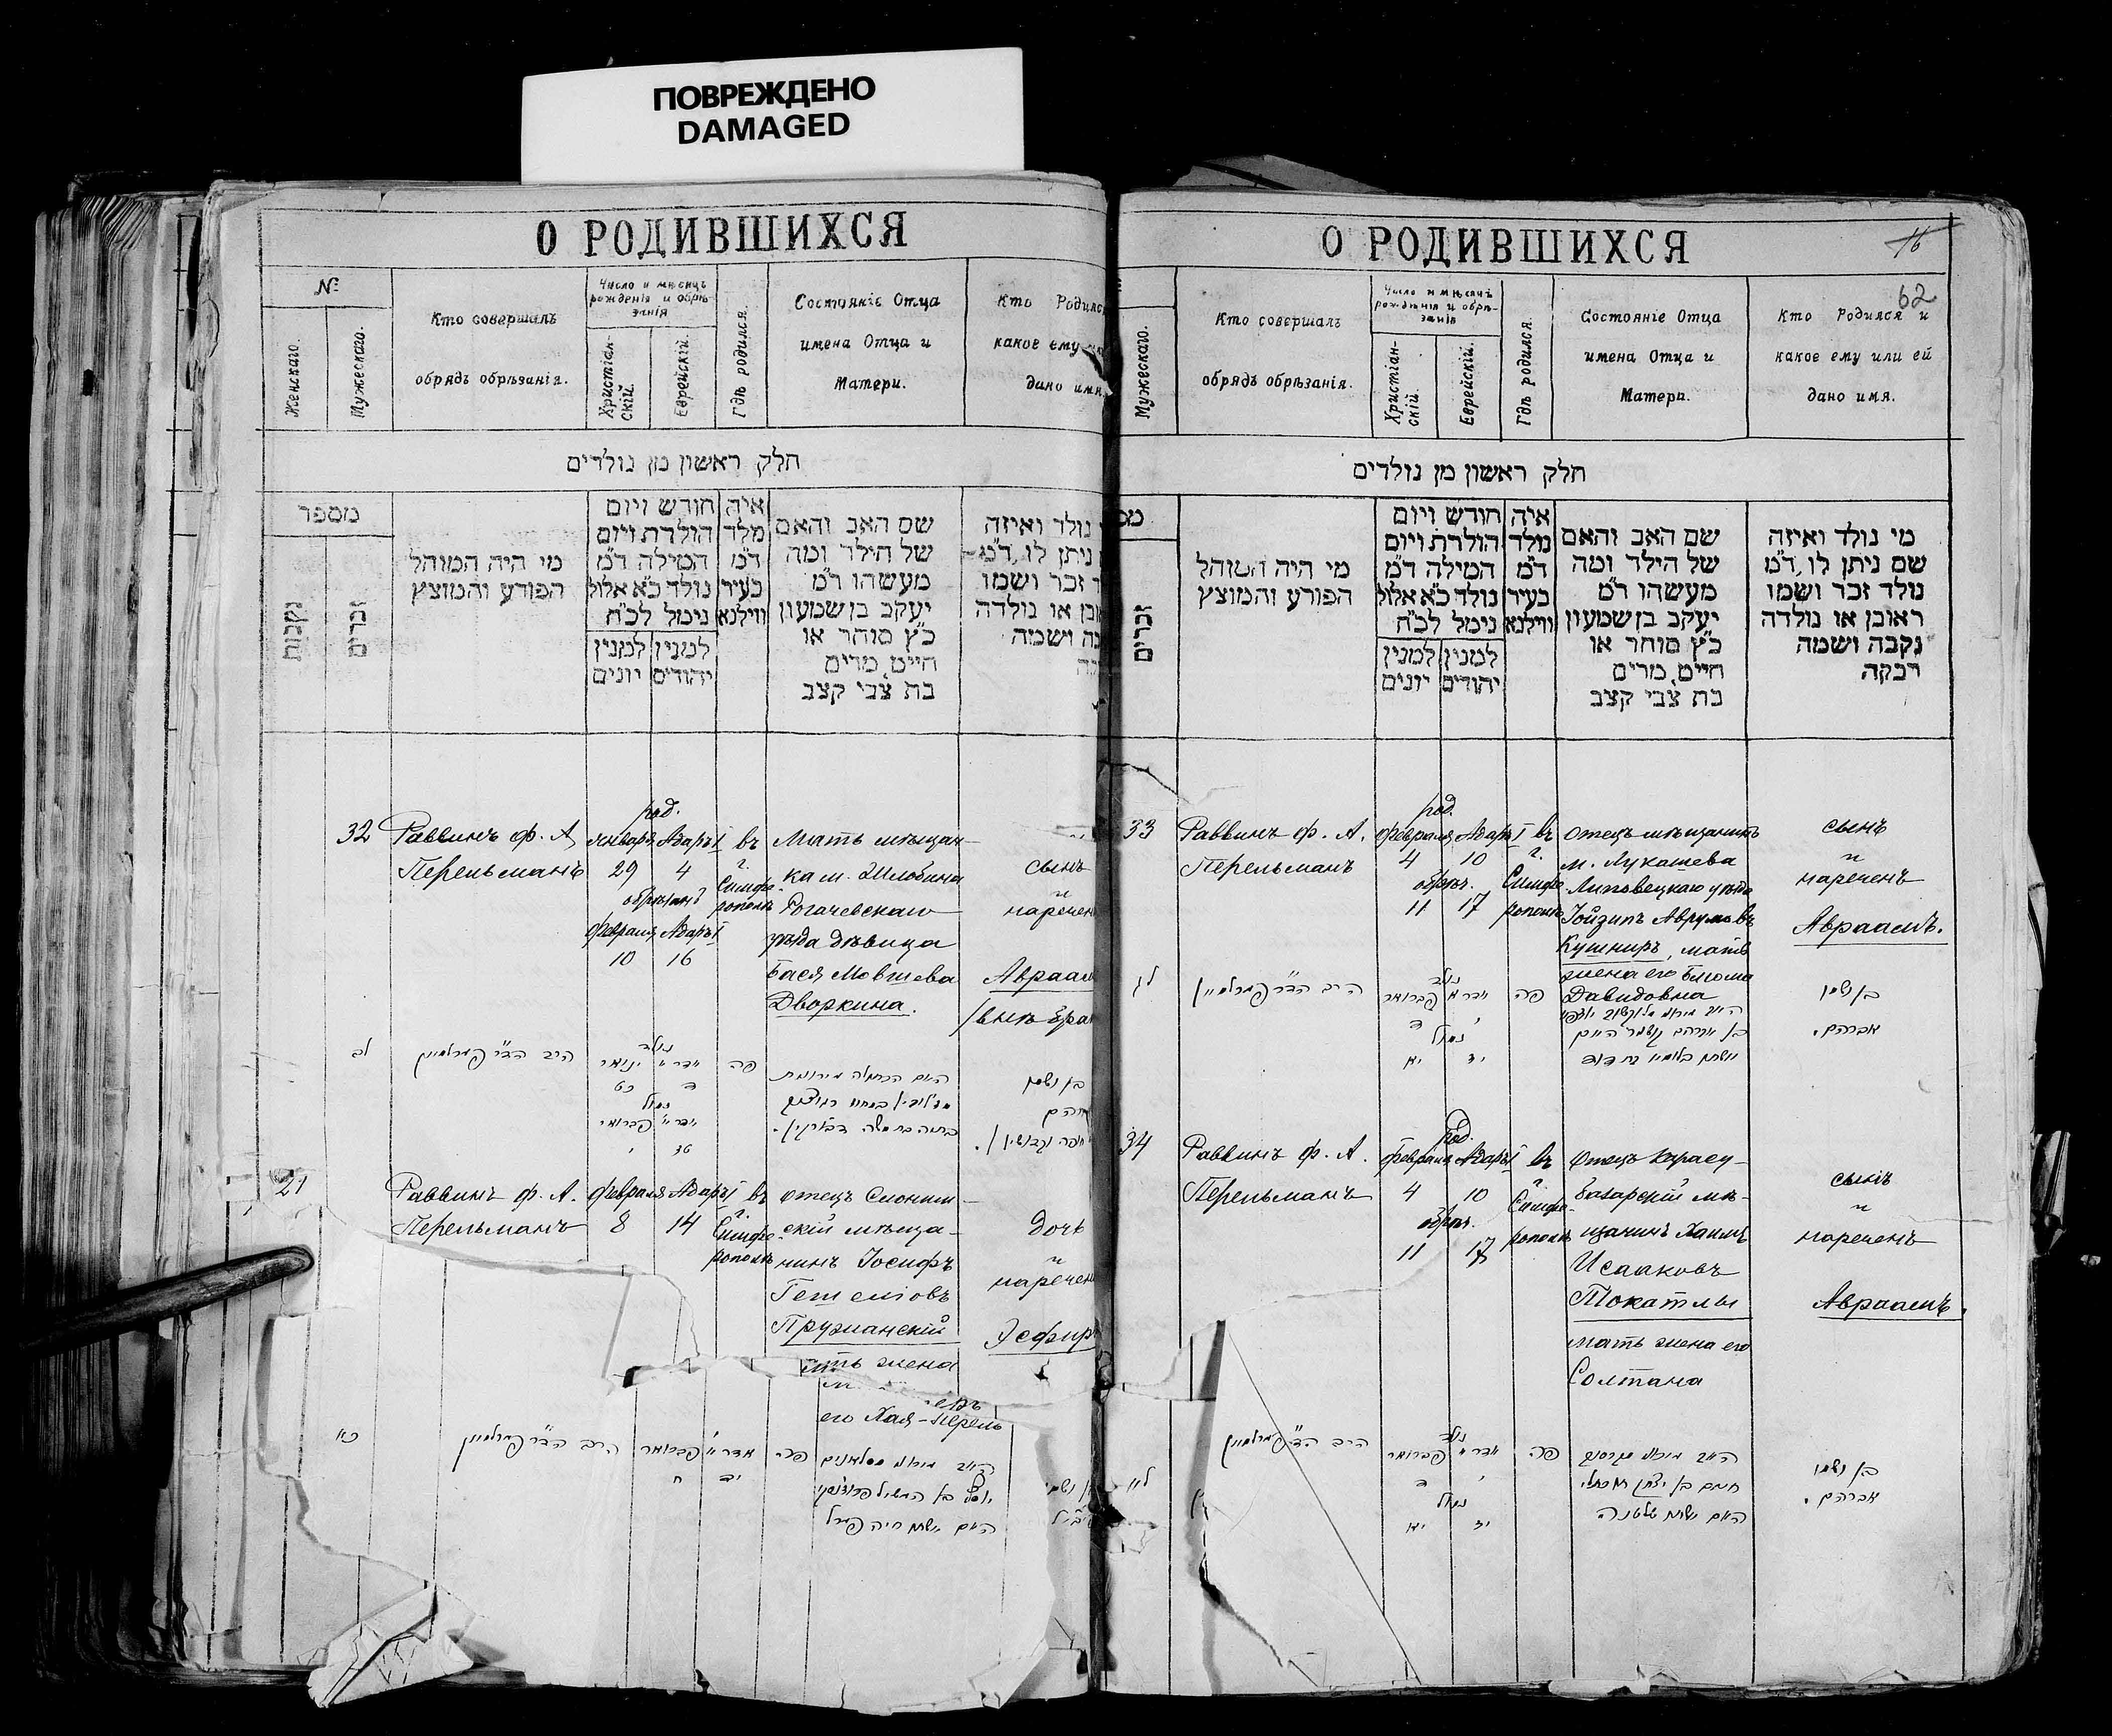 ПОВРЕЖДЕНО
DAMAGED
О РОДИВШИХСЯ
№
Женскаго.
Мужескаго.
Кто совершалъ
обрядъ обрѣзанія.
Число и мѣсяцъ
рожденія и обрѣ-
занія
Христіан-
скій.
Еврейскій.
Гдѣ родился.
Состояніе Отца
имена Отца и
Матери.
Кто Родился
какое ему
дано имя
חלק ראשון מן נולדים
מספר
נקבות
זכרים
מי היה המוהל
הפורע והמוצץ
חודש ויום
הולדת ויום
המילה ד״מ
נולד כ״א אלול
נימל לכ״ח
למנין למנין
יהודים יונים
איה
מלד
ד״מ
בעיר
ווילנא
שם האב והאם
של הילד ומה
מעשהו ד״מ
יעקב בן שמעון
כ״ץ סוחר או
חייט, מרים
בת צבי קצב
נולד ואיזה
ניתן לו, ד״מ
זכר ושמו
או נולדה
ושמה
32
Раввинъ Ф. А.
Перельманъ
род.
Январь Адаръ I
29 4
обрѣзанъ
Февраля Адаръ I
10 16
въ
г.
Симфе-
рополѣ
Мать мѣщан-
ка м. Жлобина
Рогачевскаго
уѣзда дѣвица
Бася Мовшева
Дворкина.
сынъ
и
наречен
Авраам
/внѣ бра
לב
הרב הד״ר פערלמאן
נולד
ד כט
נמול
טז י
פה
בן ושמו
21
Раввинъ Ф. А.
Перельманъ
Февраля Адаръ I
8 14
въ
г.
Симфе-
рополѣ
отецъ Слоним-
скій мѣща-
нинъ Іосифъ
Гешеліовъ
Пружанскій
мать жена
его Хая-Перель
дочь
и
наречен
Эсфирь
כא
הרב הד״ר פערלמאן
פברואר
יד ח
פה
О РОДИВШИХСЯ
16
62
Мужескаго.
Кто совершалъ
обрядъ обрѣзанія.
Число и мѣсяцъ
рожденія и обрѣ-
занія
Христіан-
скій.
Еврейскій.
Гдѣ родился.
Состояніе Отца
имена Отца и
Матери.
Кто Родился и
какое ему или ей
дано имя.
חלק ראשון מן נולדים
זכרים
מי היה המוהל
הפורע והמוצץ
חודש ויום
הולדת ויום
המילה ד״מ
נולד כ״א אלול
נימל לכ״ח
למנין למנין
יהודים יונים
איה
מלד
ד״מ
בעיר
ווילנא
שם האב והאם
של הילד ומה
מעשהו ד״מ
יעקב בן שמעון
כ״ץ סוחר או
חייט, מרים
בת צבי קצב
מי נולד ואיזה
שם ניתן לו, ד״מ
נולד זכר ושמו
ראובן או נולדה
נקבה ושמה
רבקה
33
Раввинъ Ф. А.
Перельманъ
род.
Февраля Адаръ I
4 10
обрѣз.
11 17
въ
г.
Симфе-
рополѣ
отецъ мѣщанинъ
м. Лукашева
Липовецкаго уѣзда
Іойзипъ Аврумовъ
Кушниръ, мать
жена его Блюма
Давидовна
сынъ
и
нареченъ
Авраамъ.
לג
הרב הד״ר פערלמאן
נולד
נמול
יז יא
פה
בן ושמו
אברהם.
34
Раввинъ Ф. А.
Перельманъ
род.
Февраля Адаръ I
4 10
обрѣз.
11 17
въ
г.
Симфе-
рополѣ
отецъ Карасу-
базарскій мѣ-
щанинъ Хаимъ
Исааковъ
Токатлы
мать жена его
Солтана
сынъ
и
нареченъ
Авраамъ.
הרב הד״ר פערלמאן
נולד
נמול
יז יא
פה
בן ושמו
אברהם.